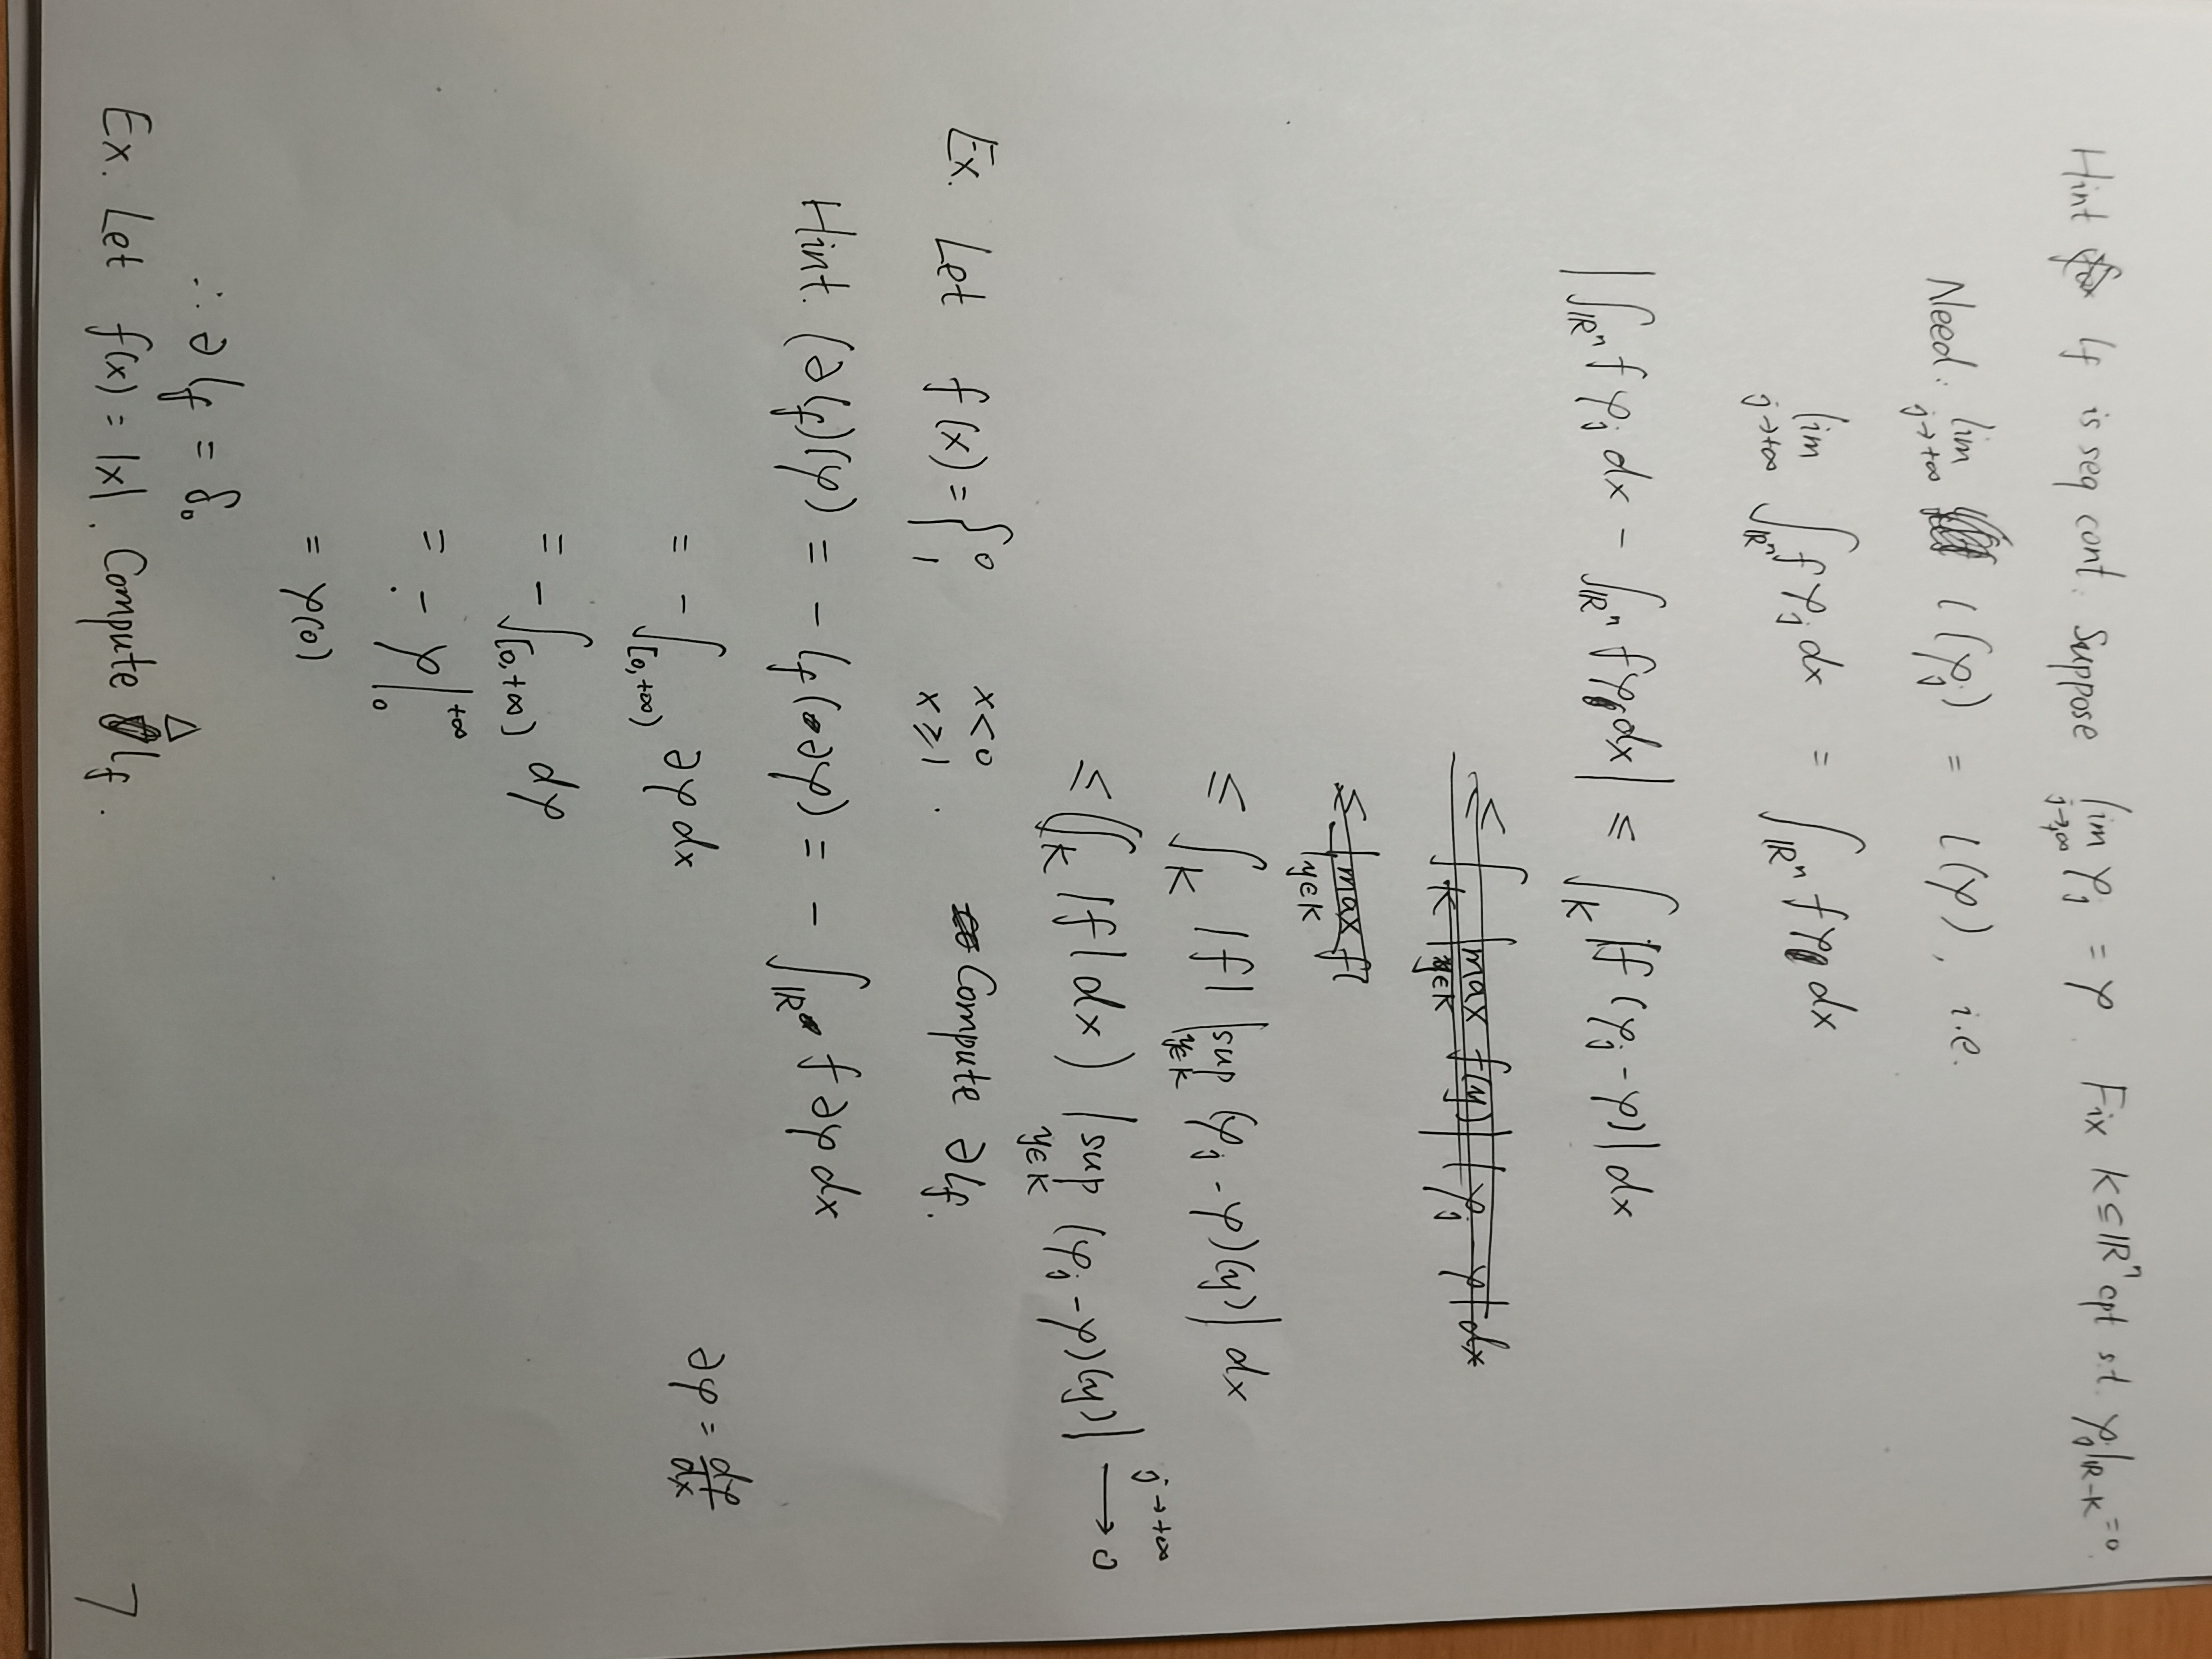 Hint lf is seq cont. Suppose lim j→+∞ φj = φ. Fix K⊆ℝⁿ cpt s.t. φj|ℝ-K =0.
Need: lim j→+∞ l(φj) = l(φ), i.e.
lim j→+∞ ∫ℝⁿ f φj dx = ∫ℝⁿ f φ dx
|∫ℝⁿ f φj dx - ∫ℝⁿ f φ dx| ≤ ∫K |f (φj - φ)| dx
≤ ∫K |max y∈K f(y)| |φj - φ| dx
≤ |max y∈K f|
≤ ∫K |f| |sup y∈K (φj - φ)(y)| dx
≤ (∫K |f| dx) |sup y∈K (φj - φ)(y)| j→+∞ ⟶ 0
Ex. Let f(x) = { 0 x<0
1 x⩾1 . Compute ∂lf.
Hint. (∂lf)(φ) = - lf(∂φ) = - ∫ℝ f ∂φ dx
= - ∫[0,+∞) ∂φ dx ∂φ = dφ/dx
= - ∫[0,+∞) dφ
= - φ|₀^{+∞}
= φ(0)
∴ ∂lf = δ₀
Ex. Let f(x) = |x|. Compute Δlf.
7